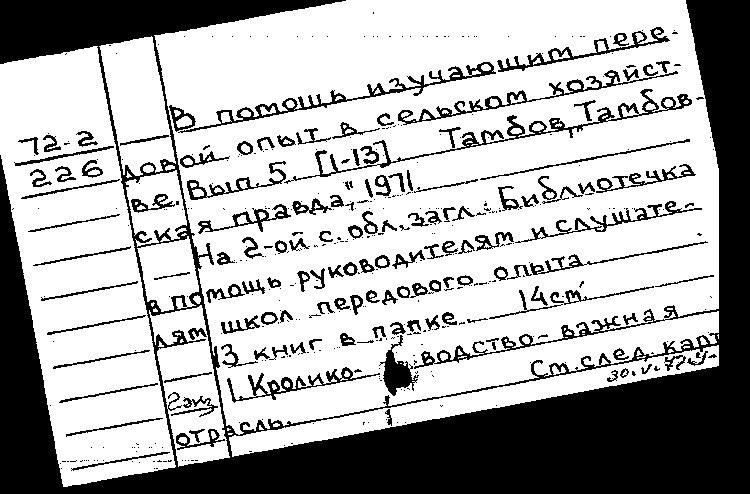 В помощь изучающим пере-
72-2
226
довой опыт в сельском хозяйст-
ве. Вып. 5. [1-13]. Тамбов, "Тамбов-
ская правда", 1971.
На 2-ой с. обл. загл.: Библиотечка
в помощь руководителям и слушате-
лям школ передового опыта.
13 книг в папке. 14cm.
1. Кролико- водство- важная
2экз
отрасль.
См. след. карт